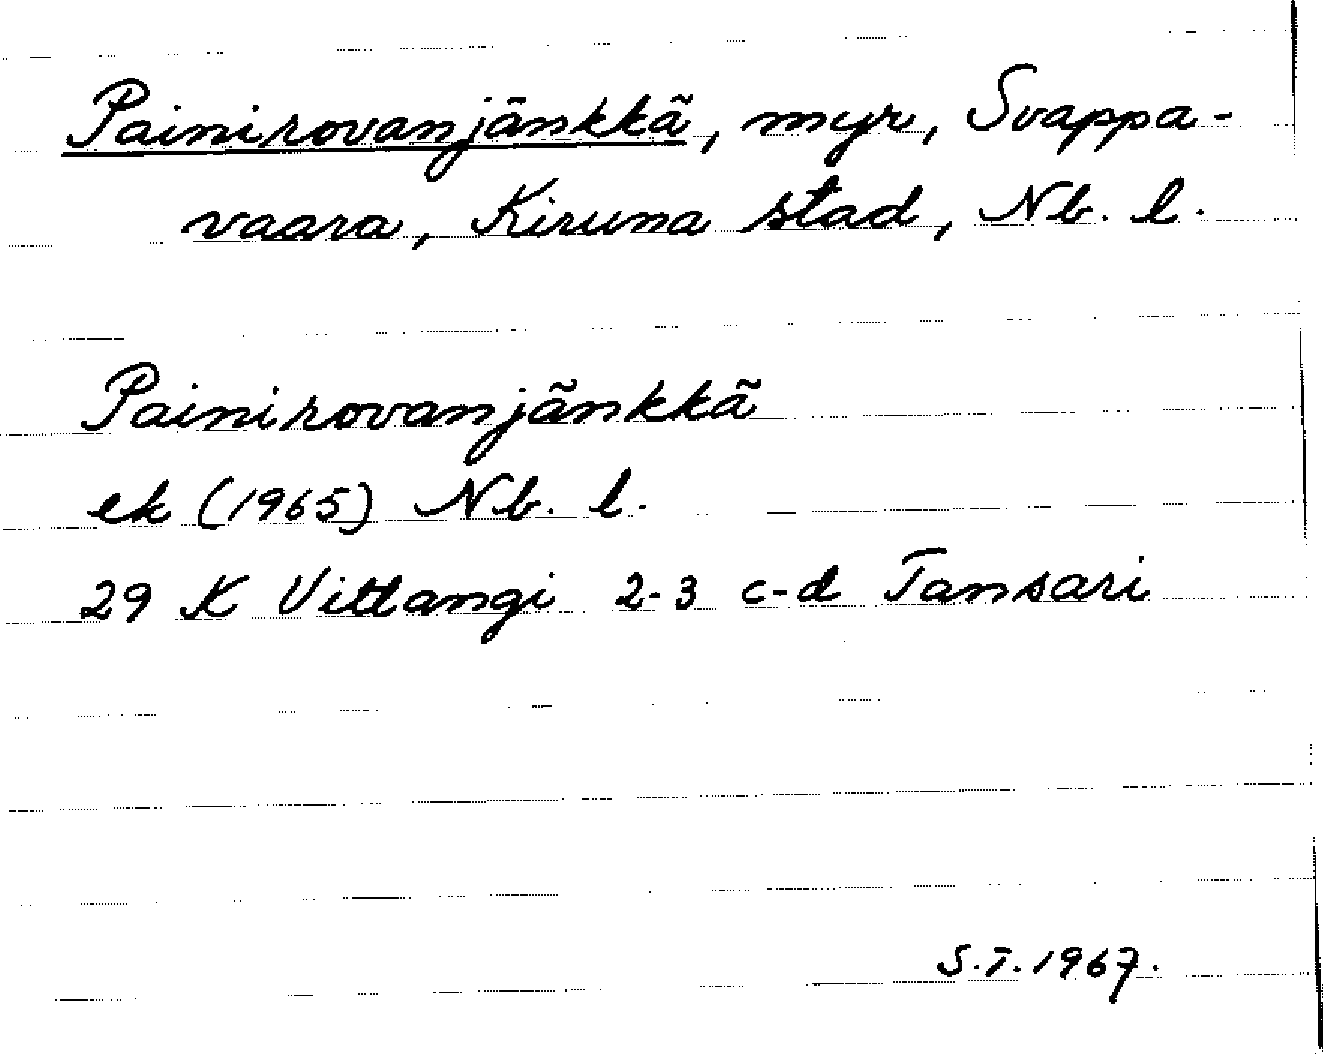 Painirovanjänkkä, myr, Svappa-
vaara, Kiruna stad, Nb. l.
Painirovanjänkkä
ek (1965) Nb. l.
29 K Vittangi 2-3 c-d Tansari
S.T. 1967.